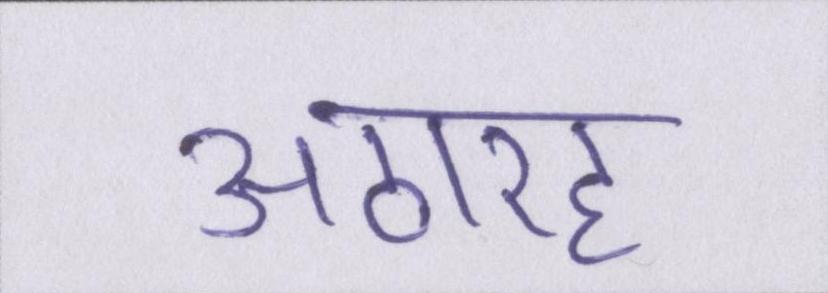 अठारह